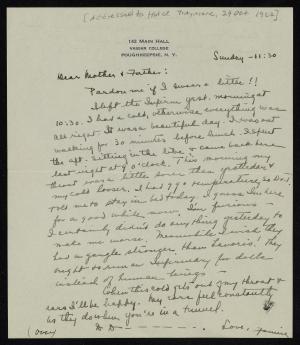 [Addressed to Hotel Traymore, 29 Oct 1922]
142 MAIN HALL
VASSAR COLLEGE
POUGHKEEPSIE, N. Y.
Sunday - 11:30
Dear Mother & Father:
Pardon me if I swear a little!!
I left the Infirm yest. morning at
10:30. I had a cold, otherwise everything was
all right. It was a beautiful day. I was out
walking for 30 minutes before lunch. I spent
the aft. sitting in the libe, & came back here
last night at 9 o'clock. This morning my
throat was a little sorer than yesterday &
my cold looser. I had 99 temperature so Dr. T.
told me to stay in bed today. I guess I'm here
for a good while now. I'm furious -
I certainly didn't do anything yesterday to
make me worse. Meanwhile I wish they
had a gargle stronger than Lavoris! They
ought to run an Infirmary for dolls
instead of human beings -
When this cold gets out of my throat &
ears I'll be happy. My ears feel constantly
as they do when you're in a tunnel.
(over)
Love, Fannie